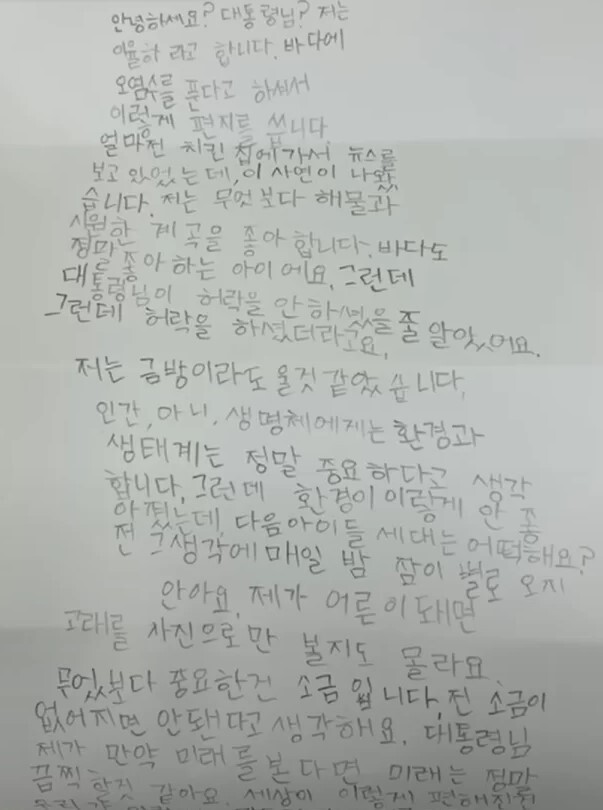 안녕하세요? 대통령님? 저는
이율하 라고 합니다. 바다에
오염수를 푼다고 하셔서
이렇게 편지를 씁니다
얼마전 치킨 집에가서 뉴스를
보고 있었는데, 이 사연이 나왔
습니다. 저는 무엇보다 해물과
시원한 계곡을 좋아 합니다. 바다도
정마 좋아 하는 아이에요. 그런데
대통령님이 허락을 안 하셨을줄 알았어요.
그런데 허락을 하셨더라고요,
저는 금방이라도 울것 같았습니다,
인간, 아니. 생명체에게는 환경과
생태계는 정말 중요하다고 생각
합니다, 그런데 환경이 이렇게 안 좋
아졌는데, 다음아이들 세대는 어떡해요?
전 그생각에 매일 밤 잠이 별로 오지
안아요. 제가 어른이 돼면
고래를 사진으로만 볼지도 몰라요.
무엇보다 중요한건 소금입니다, 전 소금이
없어지면 안됀다고 생각해요. 대통령님
제가 만약 미래를본다면 미래는 정마
끔찍 할것 같아요. 세상이 이렇게